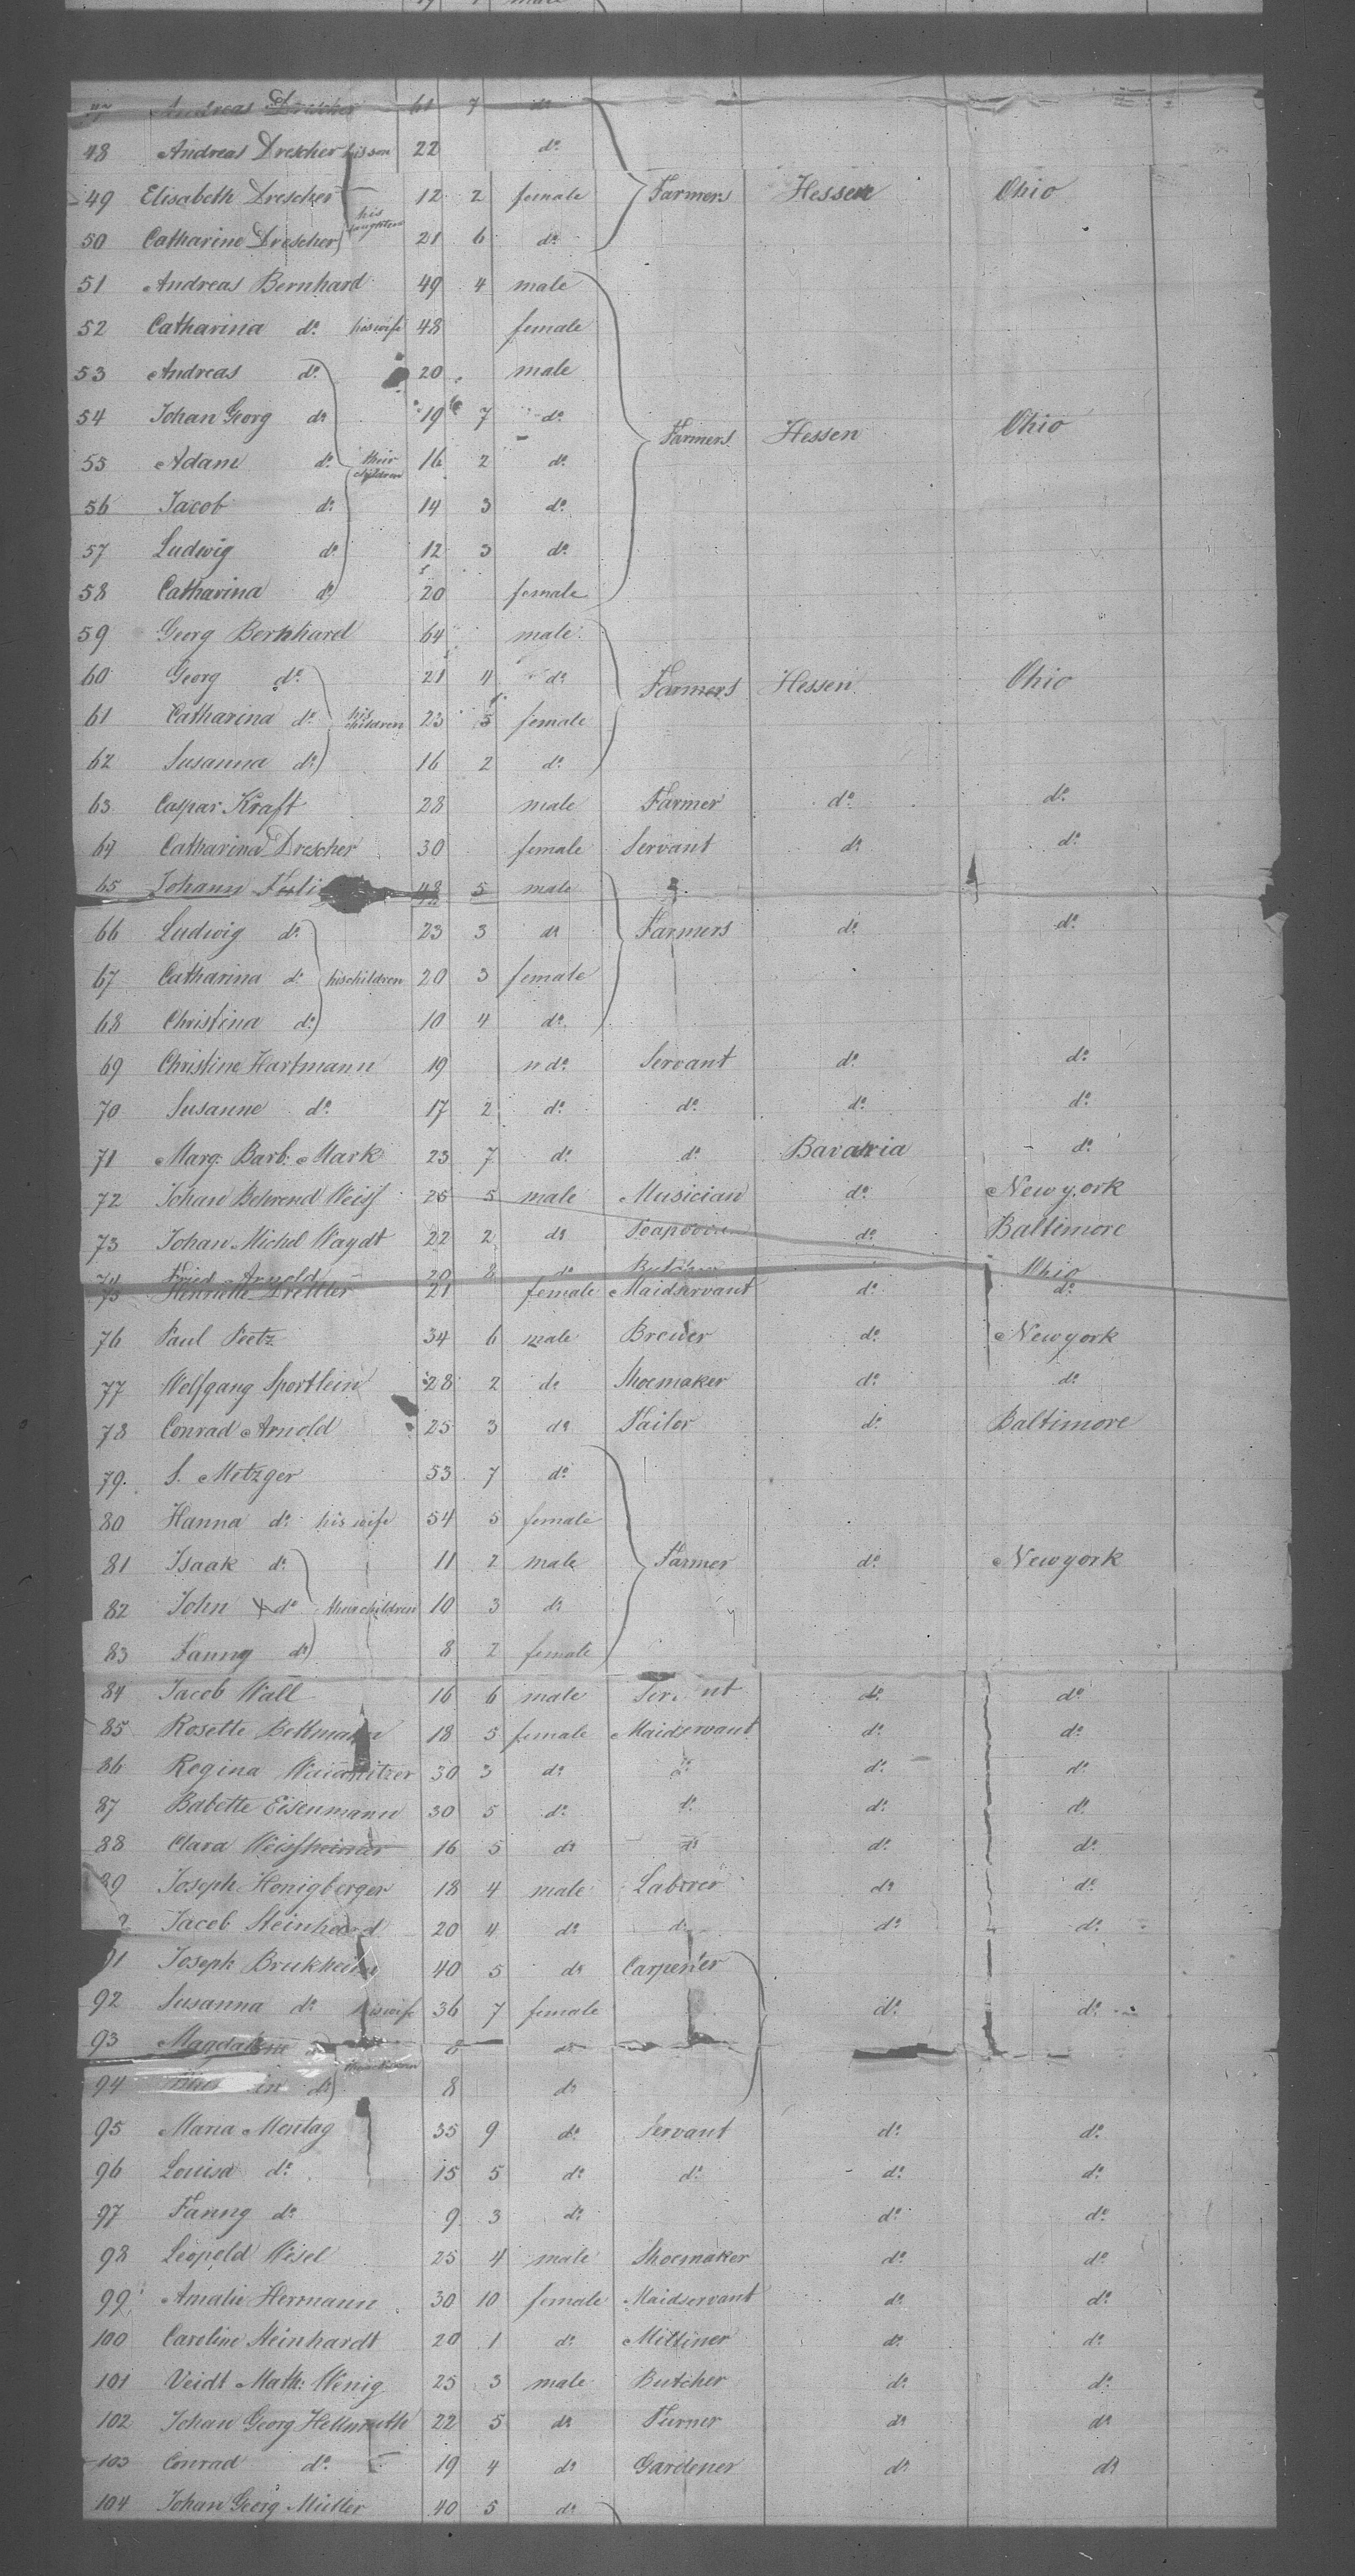 47 Andreas Drescher 61 7 do
48 Andreas Drescher his son 22 do
49 Elisabeth Drescher 12 2 female Farmers Hessen Ohio
50 Catharine Drescher his daughters 21 6 do
51 Andreas Bernhard 49 4 male
52 Catharina do his wife 48 female
53 Andreas do 20 male
54 Johan Georg do 19 7 do Farmers Hessen Ohio
55 Adam do their children 16 2 do
56 Jacob do 14 3 do
57 Ludwig do 12 3 do
58 Catharina do 20 female
59 Georg Bernhard 64 male
60 Georg do 21 4 do Farmers Hessen Ohio
61 Catharina do his children 23 5 female
62 Susanna do 16 2 do
63 Caspar Kraft 28 male Farmer do do
64 Catharina Drescher 30 female Servant do do
65 Johann 48 5 male
66 Ludwig do 23 3 do Farmers do do
67 Catharina do his children 20 3 female
68 Christina do 10 4 do
69 Christine Hartmann 19 do Servant do do
70 Susanne do 17 2 do do do do
71 Marg. Barb. Mark 23 7 do do Bavaria do
72 Johan Behrend Weiss 26 5 male Musician do New york
73 Johan Michel Waydt 22 2 do do Baltimore
74 Fried Arnold 20 8 do Butcher Ohio
75 Henriette 21 female Maidservant do do
76 Paul Peetz 34 6 male Brewer do New york
77 Wolfgang Sportlein 28 2 do Shoemaker do do
78 Conrad Arnold 25 3 do Tailor do Baltimore
79. S. Metzger 53 7 do
80 Hanna do his wife 54 5 female
81 Isaak do 11 2 male Farmer do New york
82 John do their children 10 3 do
83 Fanny do 8 2 female
84 Jacob Wall 16 6 male do do
85 Rosette Bettmann 18 5 female Maidservant do do
86 Regina 30 3 do do do do
87 Babette Eisenmann 30 5 do do do do
88 Clara Weissheimer 16 5 do do do do
89 Joseph Honigberger 18 4 male Laborer do do
Jacob Steinhard 20 4 do do do do
91 Joseph 40 5 do Carpenter
92 Susanna do his wife 36 7 female do do
93 Magdalene do 8 do
94 do 8 do
95 Maria Mentag 35 9 do Servant do do
96 Louisa do 15 5 do do do do
97 Fanny do 9 3 do do do
98 Leopold Wesel 25 4 male Shoemaker do do
99 Amalie Herrmann 30 10 female Maidservant do do
100 Caroline Steinhardt 20 1 do Milliner do do
101 Veidt Math: Wenig 25 3 male Butcher do do
102 Johan Georg Hellmuth 22 5 do Turner do do
103 Conrad do 19 4 do Gardener do do
104 Johan Georg Müller 40 5 do